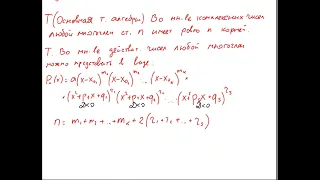 Т(Основная т. алгебры) Во мн.ве комплексных чисел
любой многочлен ст. n имеет ровно n корней.
Т. Во мн.ве действ. чисел любой многочлен
можно представить в виде.
Pₙ(x) = a(x-x₁)^m₁ (x-x₂)^m₂ ... (x-xₖ)^mₖ ·
· (x²+p₁x+q₁)^r₁ (x²+p₂x+q₂)^r₂ ... (x²+pₛx+qₛ)^rₛ
D<0 D<0 D<0
n = m₁+m₂+...+mₖ+2(r₁+r₂+...+rₛ)